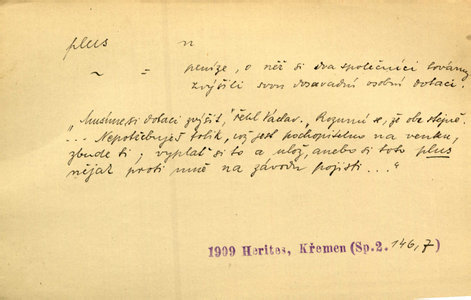 plus n
~ = peníze, o něž si dva společníci továrny
zvýšili svou dosavadní osobní dotaci.
„Musíme si dotaci zvýšit,“ řekl Václav. „Rozumí se, že obě stejně.
... Nepotřebuješ tolik, což jest pochopitelno na venku,
zbude ti; vyplať si to a ulož, anebo si toto plus
nějak proti mně na závodu pojisti ...“
1909 Herites, Křemen (Sp.2. 146,7)